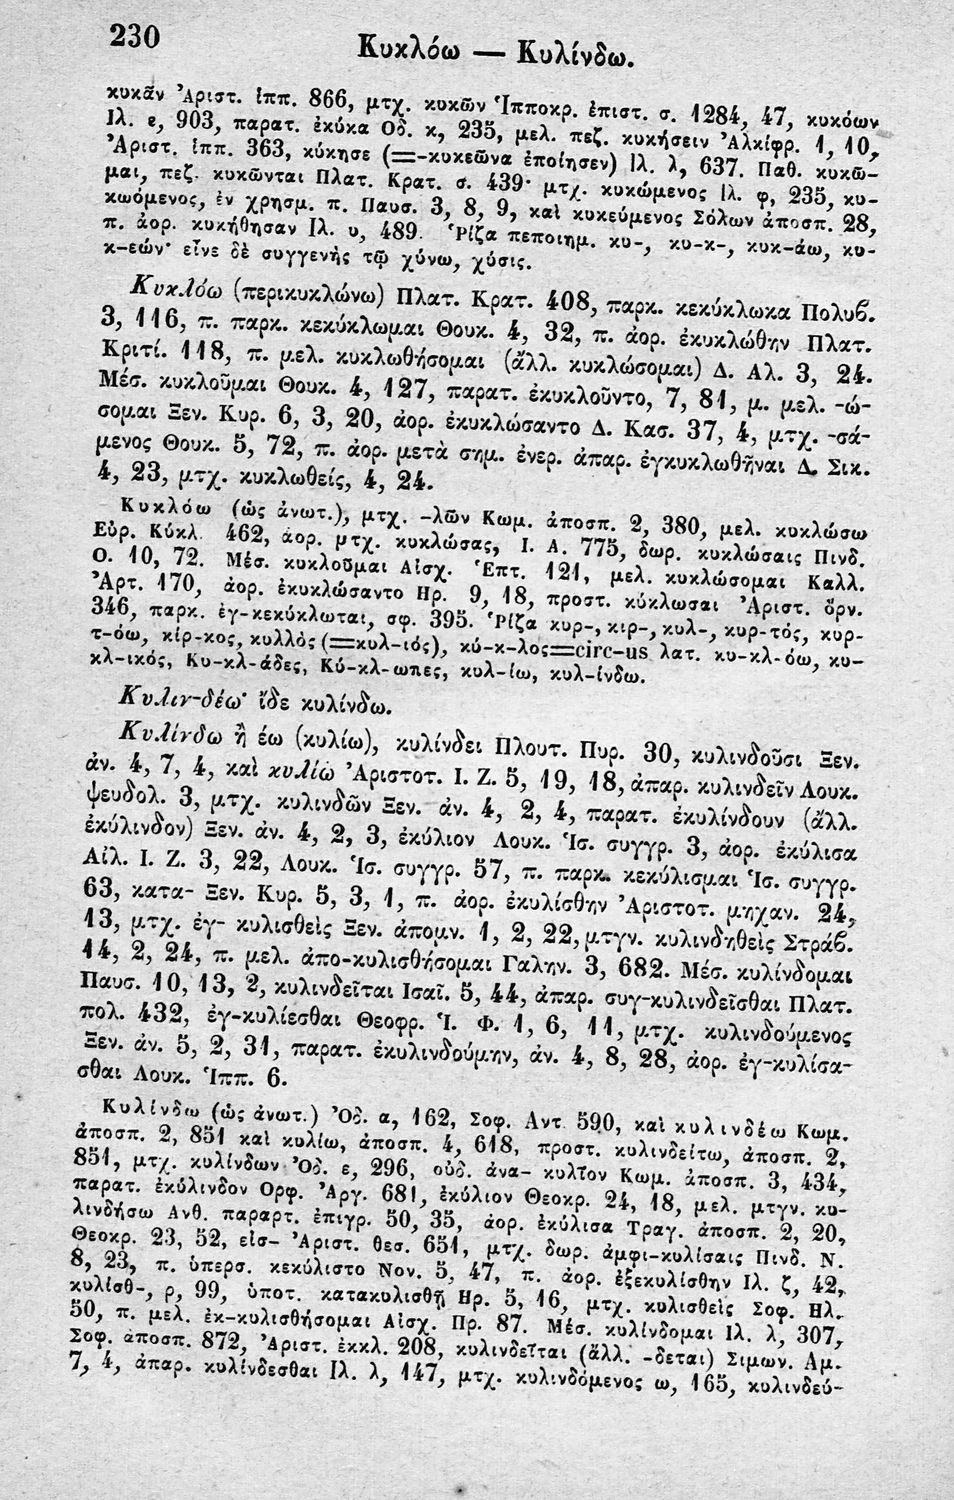 230
Κυκλόω — Κυλίνδω.
κυκᾶν Ἀριστ. ἱππ. 866, μτχ. κυκῶν Ἱπποκρ. ἐπιστ. σ. 1284, 47, κυκόων
Ἰλ. ε, 903, παρατ. ἐκύκα Ὀδ. κ, 235, μελ. πεζ. κυκήσειν Ἀλκίφρ. 1, 10,
Ἀριστ. ἱππ. 363, κύκησε (=-κυκεῶνα ἐποίησεν) Ἰλ. λ, 637. Παθ. κυκῶ-
μαι, πεζ. κυκῶνται Πλατ. Κρατ. σ. 439· μτχ. κυκώμενος Ἰλ. φ, 235, κυ-
κωόμενος, ἐν χρησμ. π. Παυσ. 3, 8, 9, καὶ κυκεύμενος Σόλων ἀποσπ. 28,
π. ἀορ. κυκήθησαν Ἰλ. υ, 489. Ῥίζα πεποιημ. κυ-, κυ-κ-, κυκ-άω, κυ-
κ-εών· εἶνε δὲ συγγενὴς τῷ χύνω, χύσις.
Κυκλόω (περικυκλώνω) Πλατ. Κρατ. 408, παρκ. κεκύκλωκα Πολυβ.
3, 116, π. παρκ. κεκύκλωμαι Θουκ. 4, 32, π. ἀορ. ἐκυκλώθην Πλατ.
Κριτί. 118, π. μελ. κυκλωθήσομαι (ἄλλ. κυκλώσομαι) Δ. Αλ. 3, 24.
Μέσ. κυκλοῦμαι Θουκ. 4, 127, παρατ. ἐκυκλοῦντο, 7, 81, μ. μελ. -ώ-
σομαι Ξεν. Κυρ. 6, 3, 20, ἀορ. ἐκυκλώσαντο Δ. Κασ. 37, 4, μτχ. -σά-
μενος Θουκ. 5, 72, π. ἀορ. μετὰ σημ. ἐνερ. ἀπαρ. ἐγκυκλωθῆναι Δ. Σικ.
4, 23, μτχ. κυκλωθείς, 4, 24.
Κυκλόω (ὡς ἀνωτ.), μτχ. -λῶν Κωμ. ἀποσπ. 2, 380, μελ. κυκλώσω
Εὐρ. Κύκλ. 462, ἀορ. μτχ. κυκλώσας, Ι. Α. 775, δωρ. κυκλώσαις Πινδ.
Ο. 10, 72. Μέσ. κυκλοῦμαι Αἰσχ. Ἑπτ. 121, μελ. κυκλώσομαι Καλλ.
Ἀρτ. 170, ἀορ. ἐκυκλώσαντο Ηρ. 9, 18, προστ. κύκλωσαι Ἀριστ. ὄρν.
346, παρκ. ἐγ-κεκύκλωται, σφ. 395. Ῥίζα κυρ-, κιρ-, κυλ-, κυρ-τός, κυρ-
τ-όω, κίρ-κος, κυλλὸς (=κυλ-ιός), κύ-κ-λος=circ-us λατ. κυ-κλ-όω, κυ-
κλ-ικός, Κυ-κλ-άδες, Κύ-κλ-ωπες, κυλ-ίω, κυλ-ίνδω.
Κυλιν-δέω· ἴδε κυλίνδω.
Κυλίνδω ἢ έω (κυλίω), κυλίνδει Πλουτ. Πυρ. 30, κυλινδοῦσι Ξεν.
ἀν. 4, 7, 4, καὶ κυλίω Ἀριστοτ. Ι. Ζ. 5, 19, 18, ἀπαρ. κυλινδεῖν Λουκ.
ψευδολ. 3, μτχ. κυλινδῶν Ξεν. ἀν. 4, 2, 4, παρατ. ἐκυλίνδουν (ἄλλ.
ἐκύλινδον) Ξεν. ἀν. 4, 2, 3, ἐκύλιον Λουκ. Ἱσ. συγγρ. 3, ἀορ. ἐκύλισα
Αἰλ. Ι. Ζ. 3, 22, Λουκ. Ἱσ. συγγρ. 57, π. παρκ. κεκύλισμαι Ἱσ. συγγρ.
63, κατα- Ξεν. Κυρ. 5, 3, 1, π. ἀορ. ἐκυλίσθην Ἀριστοτ. μηχαν. 24,
13, μτχ. ἐγ- κυλισθεὶς Ξεν. ἀπομν. 1, 2, 22, μτγν. κυλινδηθεὶς Στράβ.
14, 2, 24, π. μελ. ἀπο-κυλισθήσομαι Γαλην. 3, 682. Μέσ. κυλίνδομαι
Παυσ. 10, 13, 2, κυλινδεῖται Ισαῖ. 5, 44, ἀπαρ. συγ-κυλινδεῖσθαι Πλατ.
πολ. 432, ἐγ-κυλίεσθαι Θεοφρ. Ἱ. Φ. 1, 6, 11, μτχ. κυλινδούμενος
Ξεν. ἀν. 5, 2, 31, παρατ. ἐκυλινδούμην, ἀν. 4, 8, 28, ἀορ. ἐγ-κυλίσα-
σθαι Λουκ. Ἱππ. 6.
Κυλίνδω (ὡς ἀνωτ.) Ὀδ. α, 162, Σοφ. Αντ. 590, καὶ κυλινδέω Κωμ.
ἀποσπ. 2, 851 καὶ κυλίω, ἀποσπ. 4, 618, προστ. κυλινδείτω, ἀποσπ. 2,
851, μτχ. κυλίνδων Ὀδ. ε, 296, οὐδ. ἀνα- κυλῖον Κωμ. ἀποσπ. 3, 434,
παρατ. ἐκύλινδον Ορφ. Ἀργ. 681, ἐκύλιον Θεοκρ. 24, 18, μελ. μτγν. κυ-
λινδήσω Ανθ. παραρτ. ἐπιγρ. 50, 35, ἀορ. ἐκύλισα Τραγ. ἀποσπ. 2, 20,
Θεοκρ. 23, 52, εἰσ- Ἀριστ. θεσ. 651, μτχ. δωρ. ἀμφι-κυλίσαις Πινδ. Ν.
8, 23, π. ὑπερσ. κεκύλιστο Νον. 5, 47, π. ἀορ. ἐξεκυλίσθην Ἰλ. ζ, 42,
κυλίσθ-, ρ, 99, ὑποτ. κατακυλισθῇ Ηρ. 5, 16, μτχ. κυλισθεὶς Σοφ. Ηλ.
50, π. μελ. ἐκ-κυλισθήσομαι Αἰσχ. Πρ. 87. Μέσ. κυλίνδομαι Ἰλ. λ, 307,
Σοφ. ἀποσπ. 872, Ἀριστ. ἐκκλ. 208, κυλινδεῖται (ἄλλ. -δεται) Σιμων. Αμ.
7, 4, ἀπαρ. κυλίνδεσθαι Ἰλ. λ, 147, μτχ. κυλινδόμενος ω, 165, κυλινδεύ-